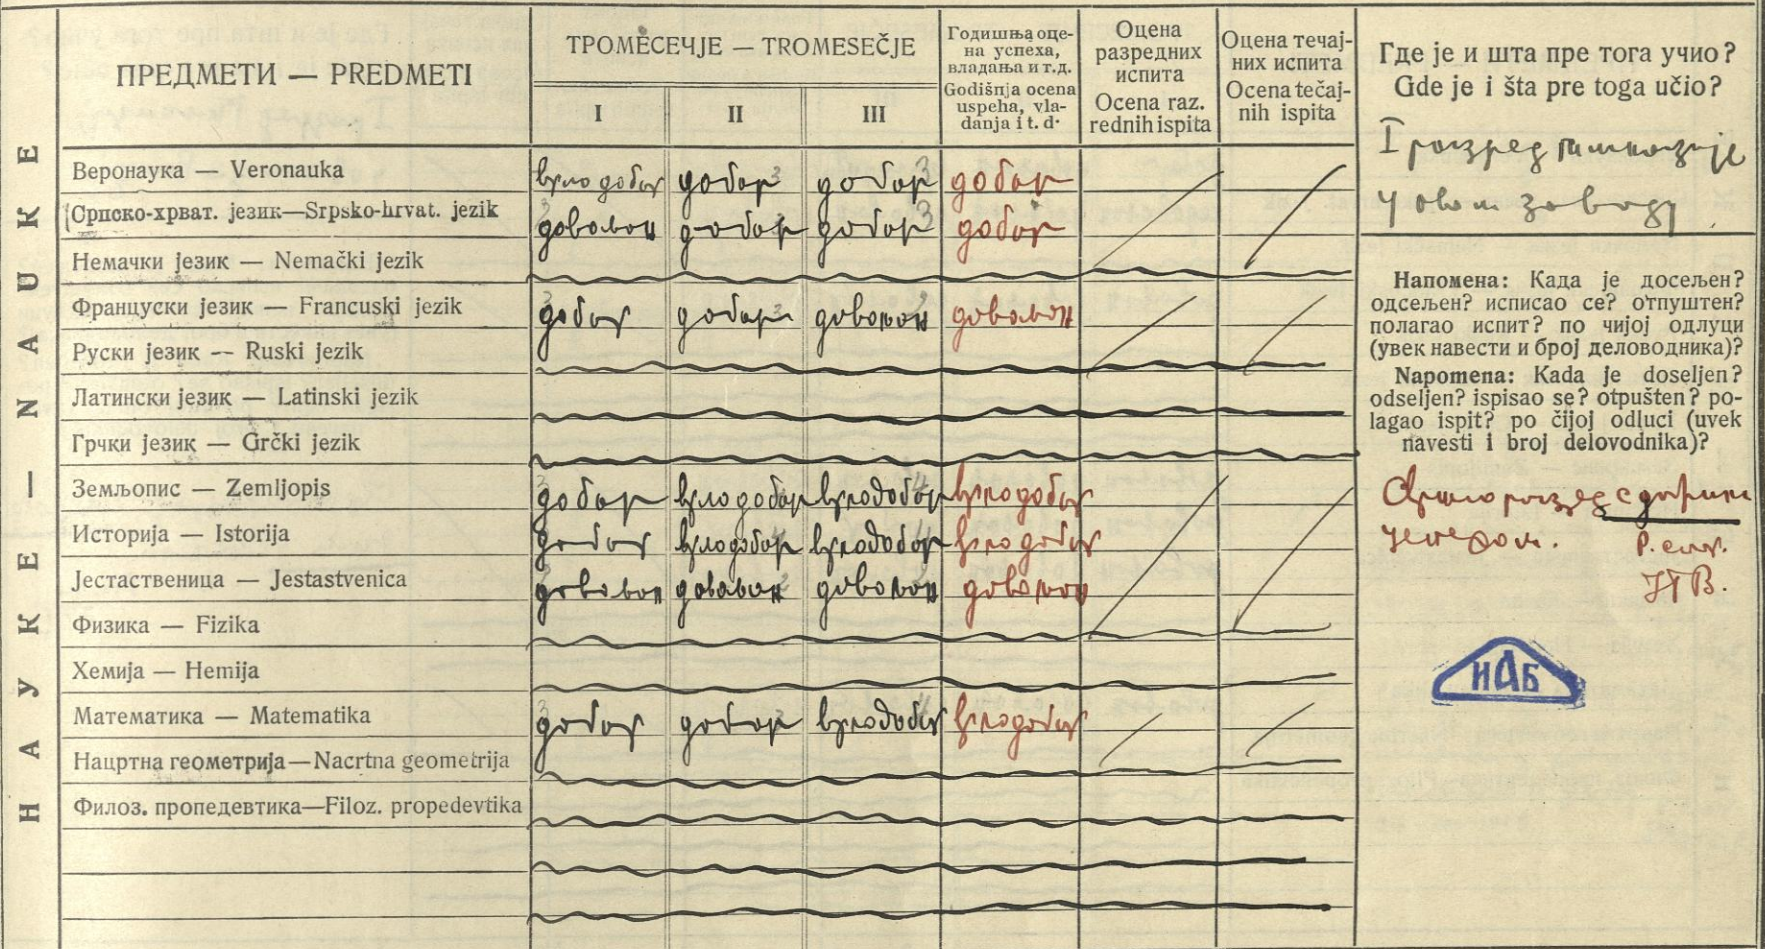 НАУКЕ — NAUKE
ПРЕДМЕТИ — PREDMETI
ТРОМЕСЕЧЈЕ — TROMESEČJE
I II III
Годишња оце-
на успеха,
владања и т.д.
Godišnja ocena
uspeha, vla-
danja i t. d.
Оцена
разредних
испита
Ocena raz.
rednih ispita
Оцена течај-
них испита
Ocena tečaj-
nih ispita
Веронаука — Veronauka врло добар добар 3 добар 3 добар
Српско-хрват. језик—Srpsko-hrvat. jezik довољан добар добар 3 добар
Немачки језик — Nemački jezik
Француски језик — Francuski jezik добар добар 3 довољан довољан
Руски језик -- Ruski jezik
Латински језик — Latinski jezik
Грчки језик — Grčki jezik
Земљопис — Zemljopis добар врло добар врло добар 4 врло добар
Историја — Istorija добар врло добар врло добар врло добар
Јестаственица — Jestastvenica довољан довољан довољан довољан
Физика — Fizika
Хемија — Hemija
Математика — Matematika добар добар врло добар 4 врло добар
Нацртна геометрија—Nacrtna geometrija
Филоз. пропедевтика—Filoz. propedevtika
Где је и шта пре тога учио?
Gde je i šta pre toga učio?
I разред гимназије
у овом заводу
Напомена: Када је досељен?
одсељен? исписао се? отпуштен?
полагао испит? по чијој одлуци
(увек навести и број деловодника)?
Napomena: Kada je doseljen?
odseljen? ispisao se? otpušten? po-
lagao ispit? po čijoj odluci (uvek
navesti i broj delovodnika)?
Свршио разред с добрим
успехом.
Р. стар.
ИАБ